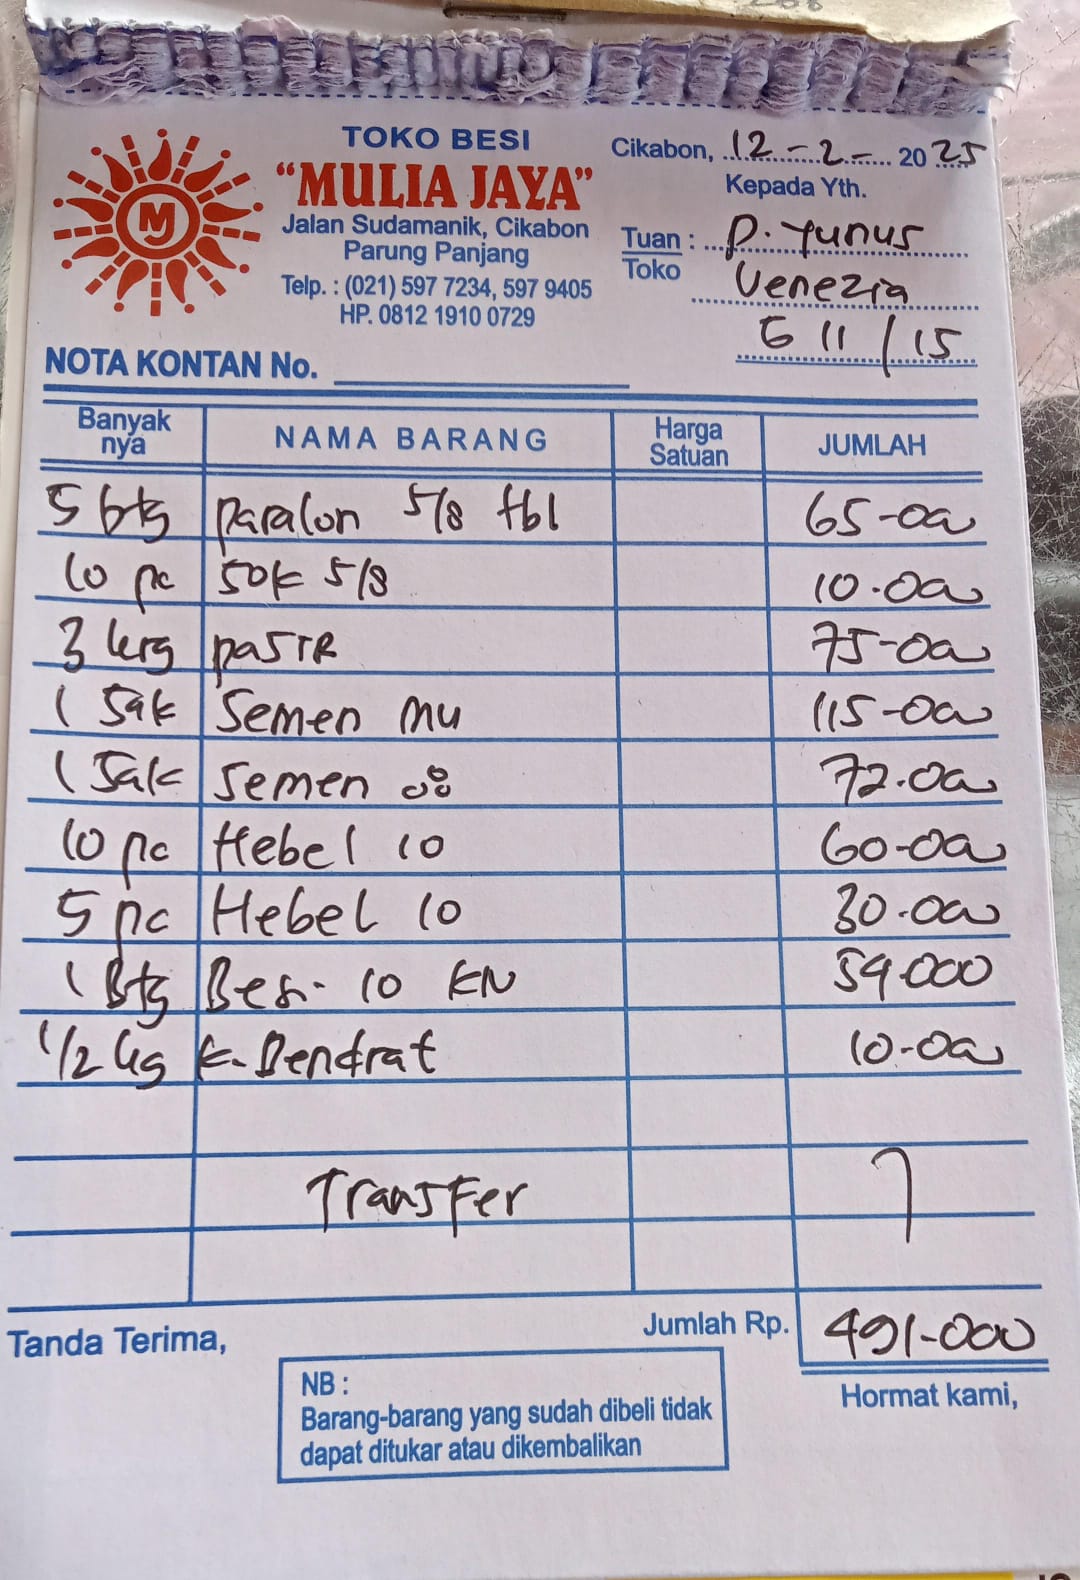 TOKO BESI
"MULIA JAYA"
Jalan Sudamanik, Cikabon
Parung Panjang
Telp. : (021) 597 7234, 597 9405
HP. 0812 1910 0729
MJ
Cikabon, 12-2- 2025
Kepada Yth.
Tuan : P. Yunus
Toko Venezia
G 11/15
NOTA KONTAN No.
Banyak nya NAMA BARANG Harga Satuan JUMLAH
5 btg paralon 5/8 tbl 65-000
10 pc sok 5/8 10.000
3 krg pasir 75-000
1 Sak Semen mu 115-000
1 Sak Semen 72.000
10 pc Hebel 10 60-000
5 pc Hebel 10 30.000
1 Btg Besi 10 KN 54.000
1/2 kg k. Bendrat 10-000
Transfer
Jumlah Rp. 491-000
Tanda Terima,
Hormat kami,
NB :
Barang-barang yang sudah dibeli tidak
dapat ditukar atau dikembalikan